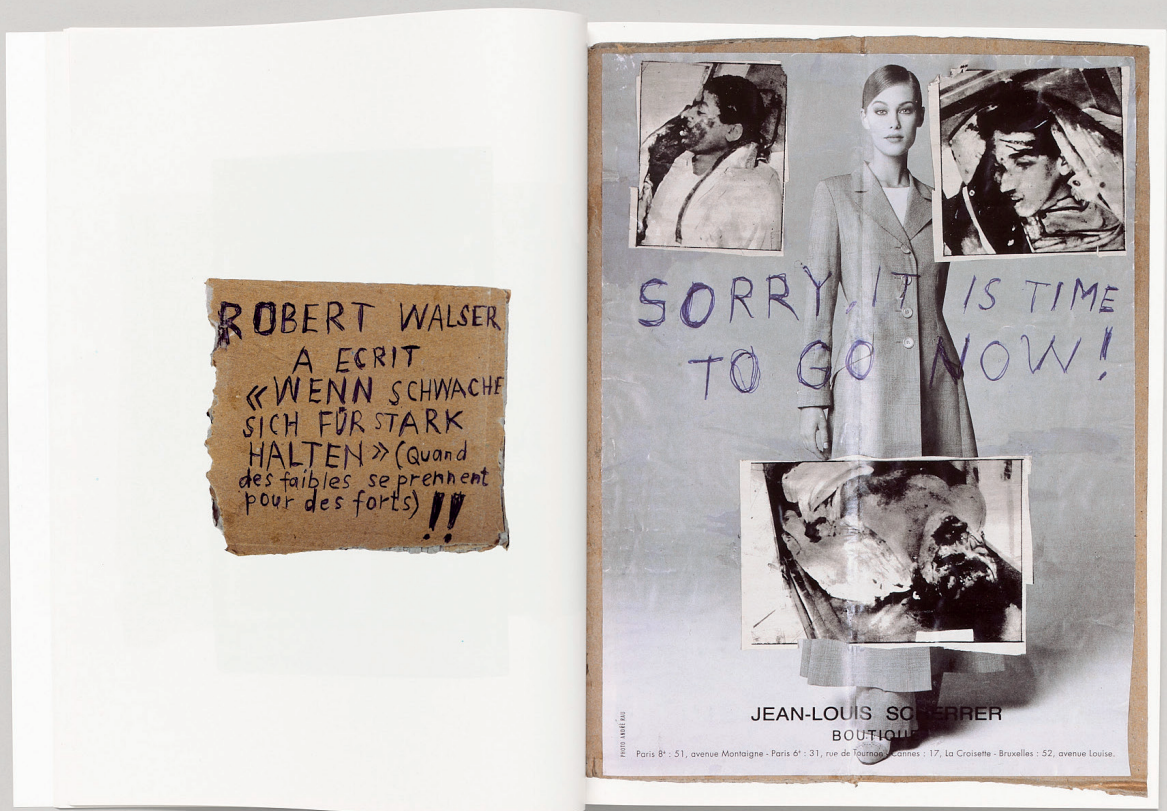 ROBERT WALSER
A ECRIT
«WENN SCHWACHE
SICH FÜR STARK
HALTEN» (Quand
des faibles se prennent
pour des forts) !!
SORRY, IT IS TIME
TO GO NOW!
JEAN-LOUIS SCHERRER
BOUTIQUE
PHOTO ANDRÉ RAU
Paris 8e : 51, avenue Montaigne - Paris 6e : 31, rue de Tournon - Cannes : 17, La Croisette - Bruxelles : 52, avenue Louise.